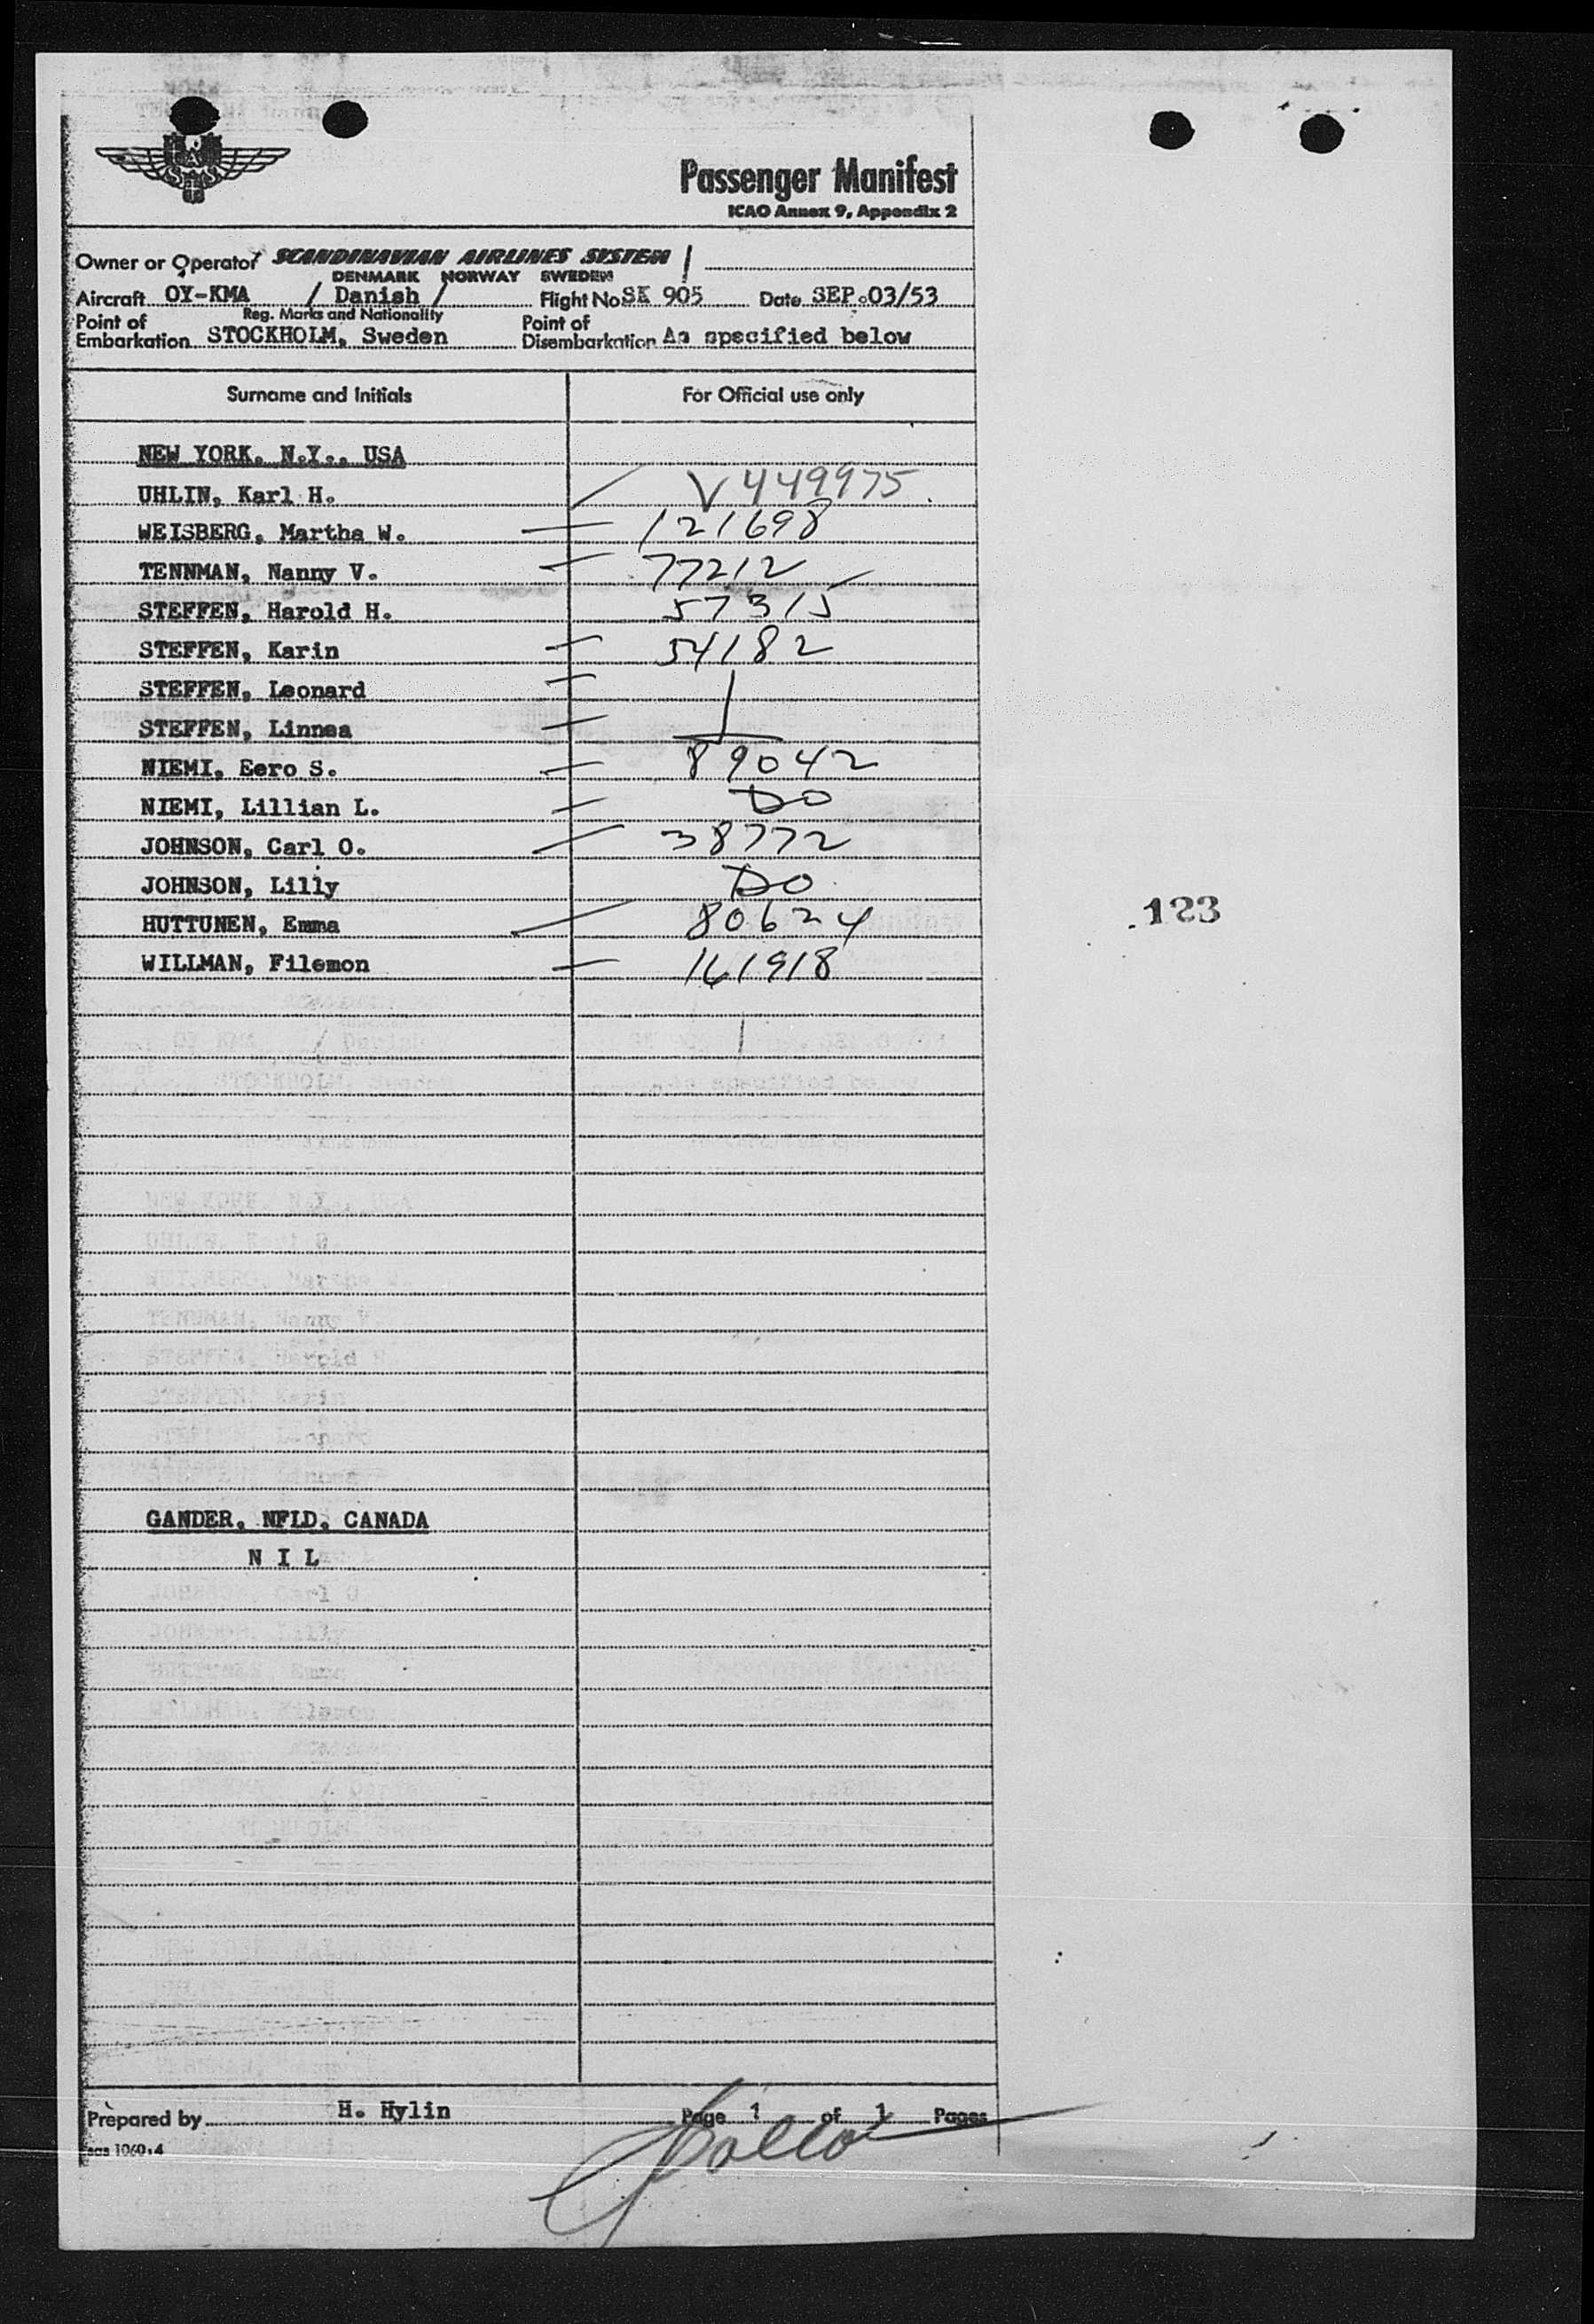 SAS
Passenger Manifest
ICAO Annex 9, Appendix 2
Owner or Operator SCANDINAVIAN AIRLINES SYSTEM
DENMARK NORWAY SWEDEN
Aircraft OY-KMA / Danish / Flight No SK 905 Date SEP.03/53
Reg. Marks and Nationality
Point of Embarkation STOCKHOLM, Sweden Point of Disembarkation As specified below
Surname and Initials For Official use only
NEW YORK, N.Y., USA
UHLIN, Karl H. V 449975
WEISBERG, Martha W. 121698
TENNMAN, Nanny V. 77212
STEFFEN, Harold H. 57315
STEFFEN, Karin 54182
STEFFEN, Leonard
STEFFEN, Linnea
NIEMI, Eero S. 89042
NIEMI, Lillian L. DO
JOHNSON, Carl O. 38772
JOHNSON, Lilly DO
HUTTUNEN, Emma 80624
123
WILLMAN, Filemon 161918
GANDER, NFLD, CANADA
N I L
Prepared by H. Hylin Page 1 of 1 Pages
sas 1060:4